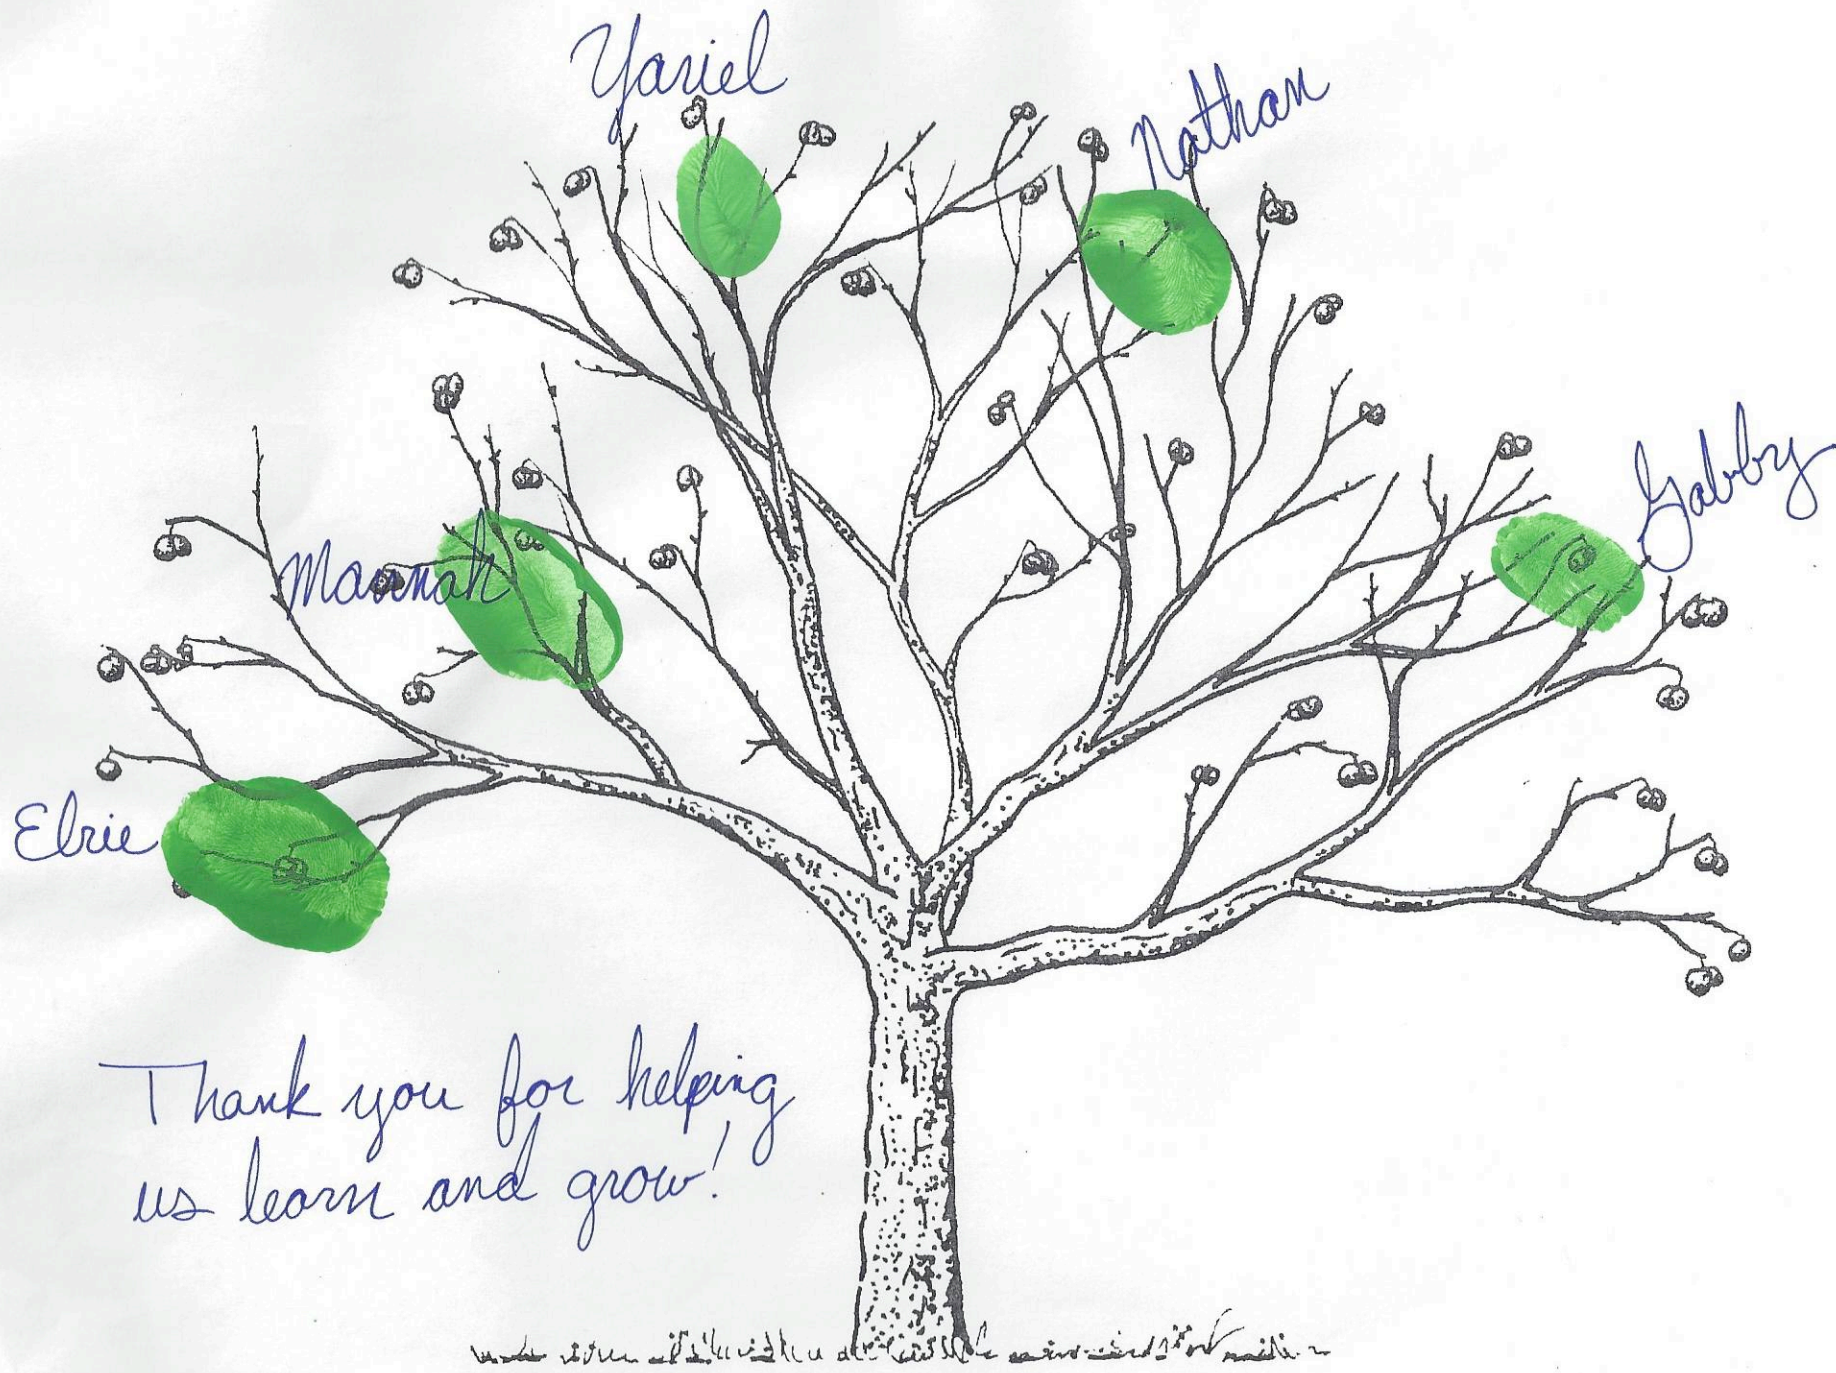 Yariel
Nathan
Gabby
Mannah
Elrie
Thank you for helping
us learn and grow!